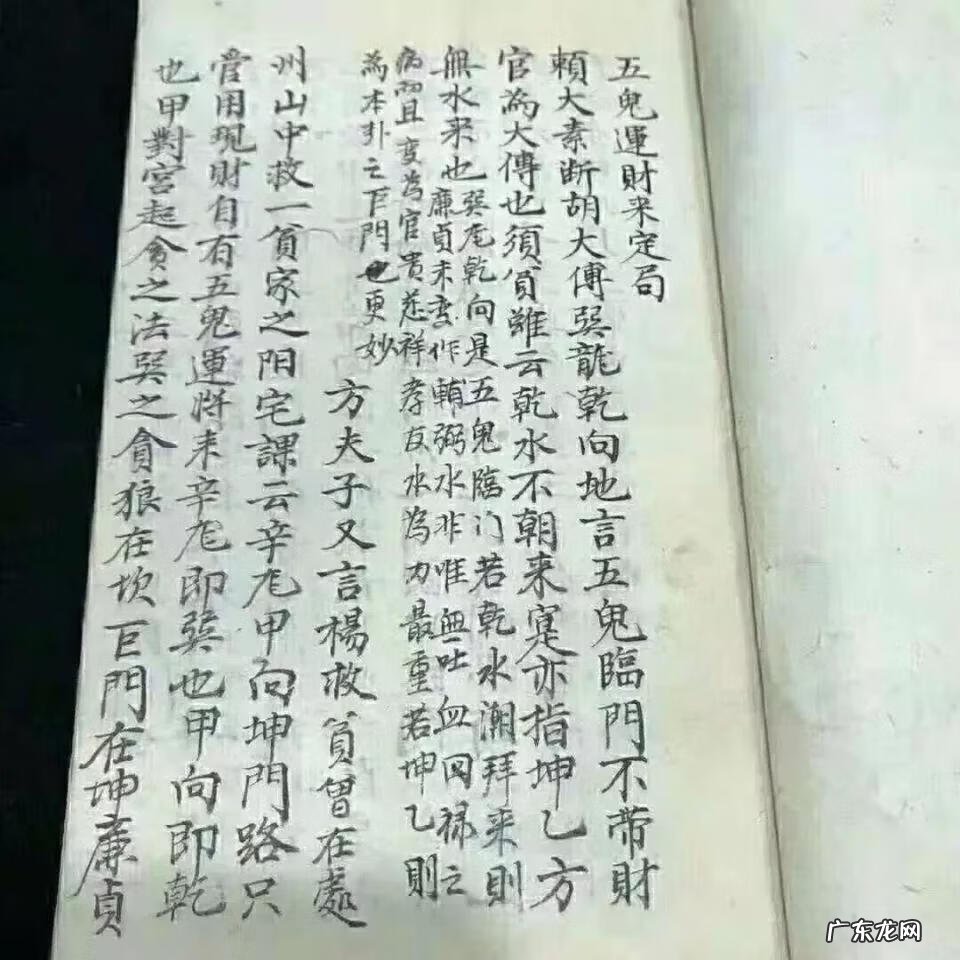 五鬼運財来定局
頼大素断胡大傅巽龍乾向地言五鬼臨門不帶財
官為大傅也須貧雖云乾水不朝来寔亦指坤乙方
無水来也巽尨乾向是五鬼臨门若乾水潮拜来則
廉貞未变作輔弼水非唯無吐血回禄之
病而且变為官贵慈祥孝友水為力最重若坤乙則
為本卦之巨門也更妙
方夫子又言楊救貧曾在處
州山中救一貧家之阳宅課云辛尨甲向坤門路只
管用現財自有五鬼運将来辛尨即巽也甲向即乾
也甲對宫起貪之法巽之貪狼在坎巨門在坤廉貞
广东龙网